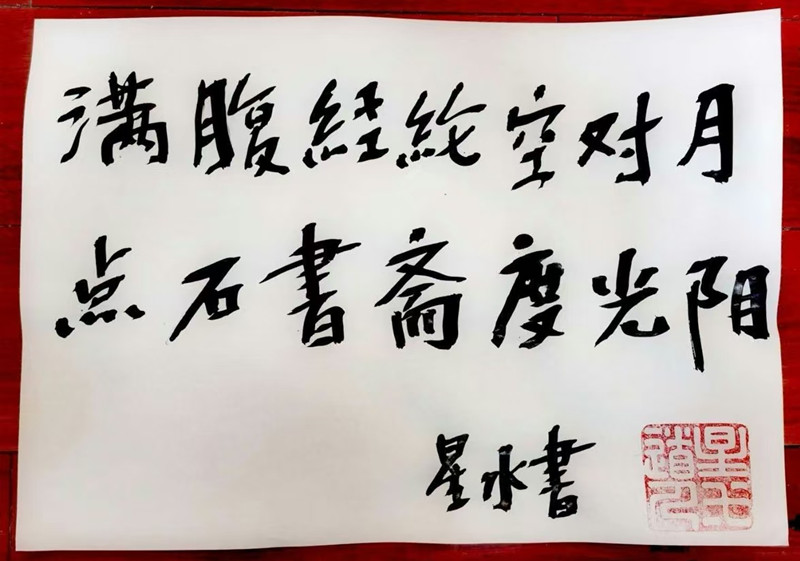 满腹经纶空对月
点石書斋度光阳
星水書